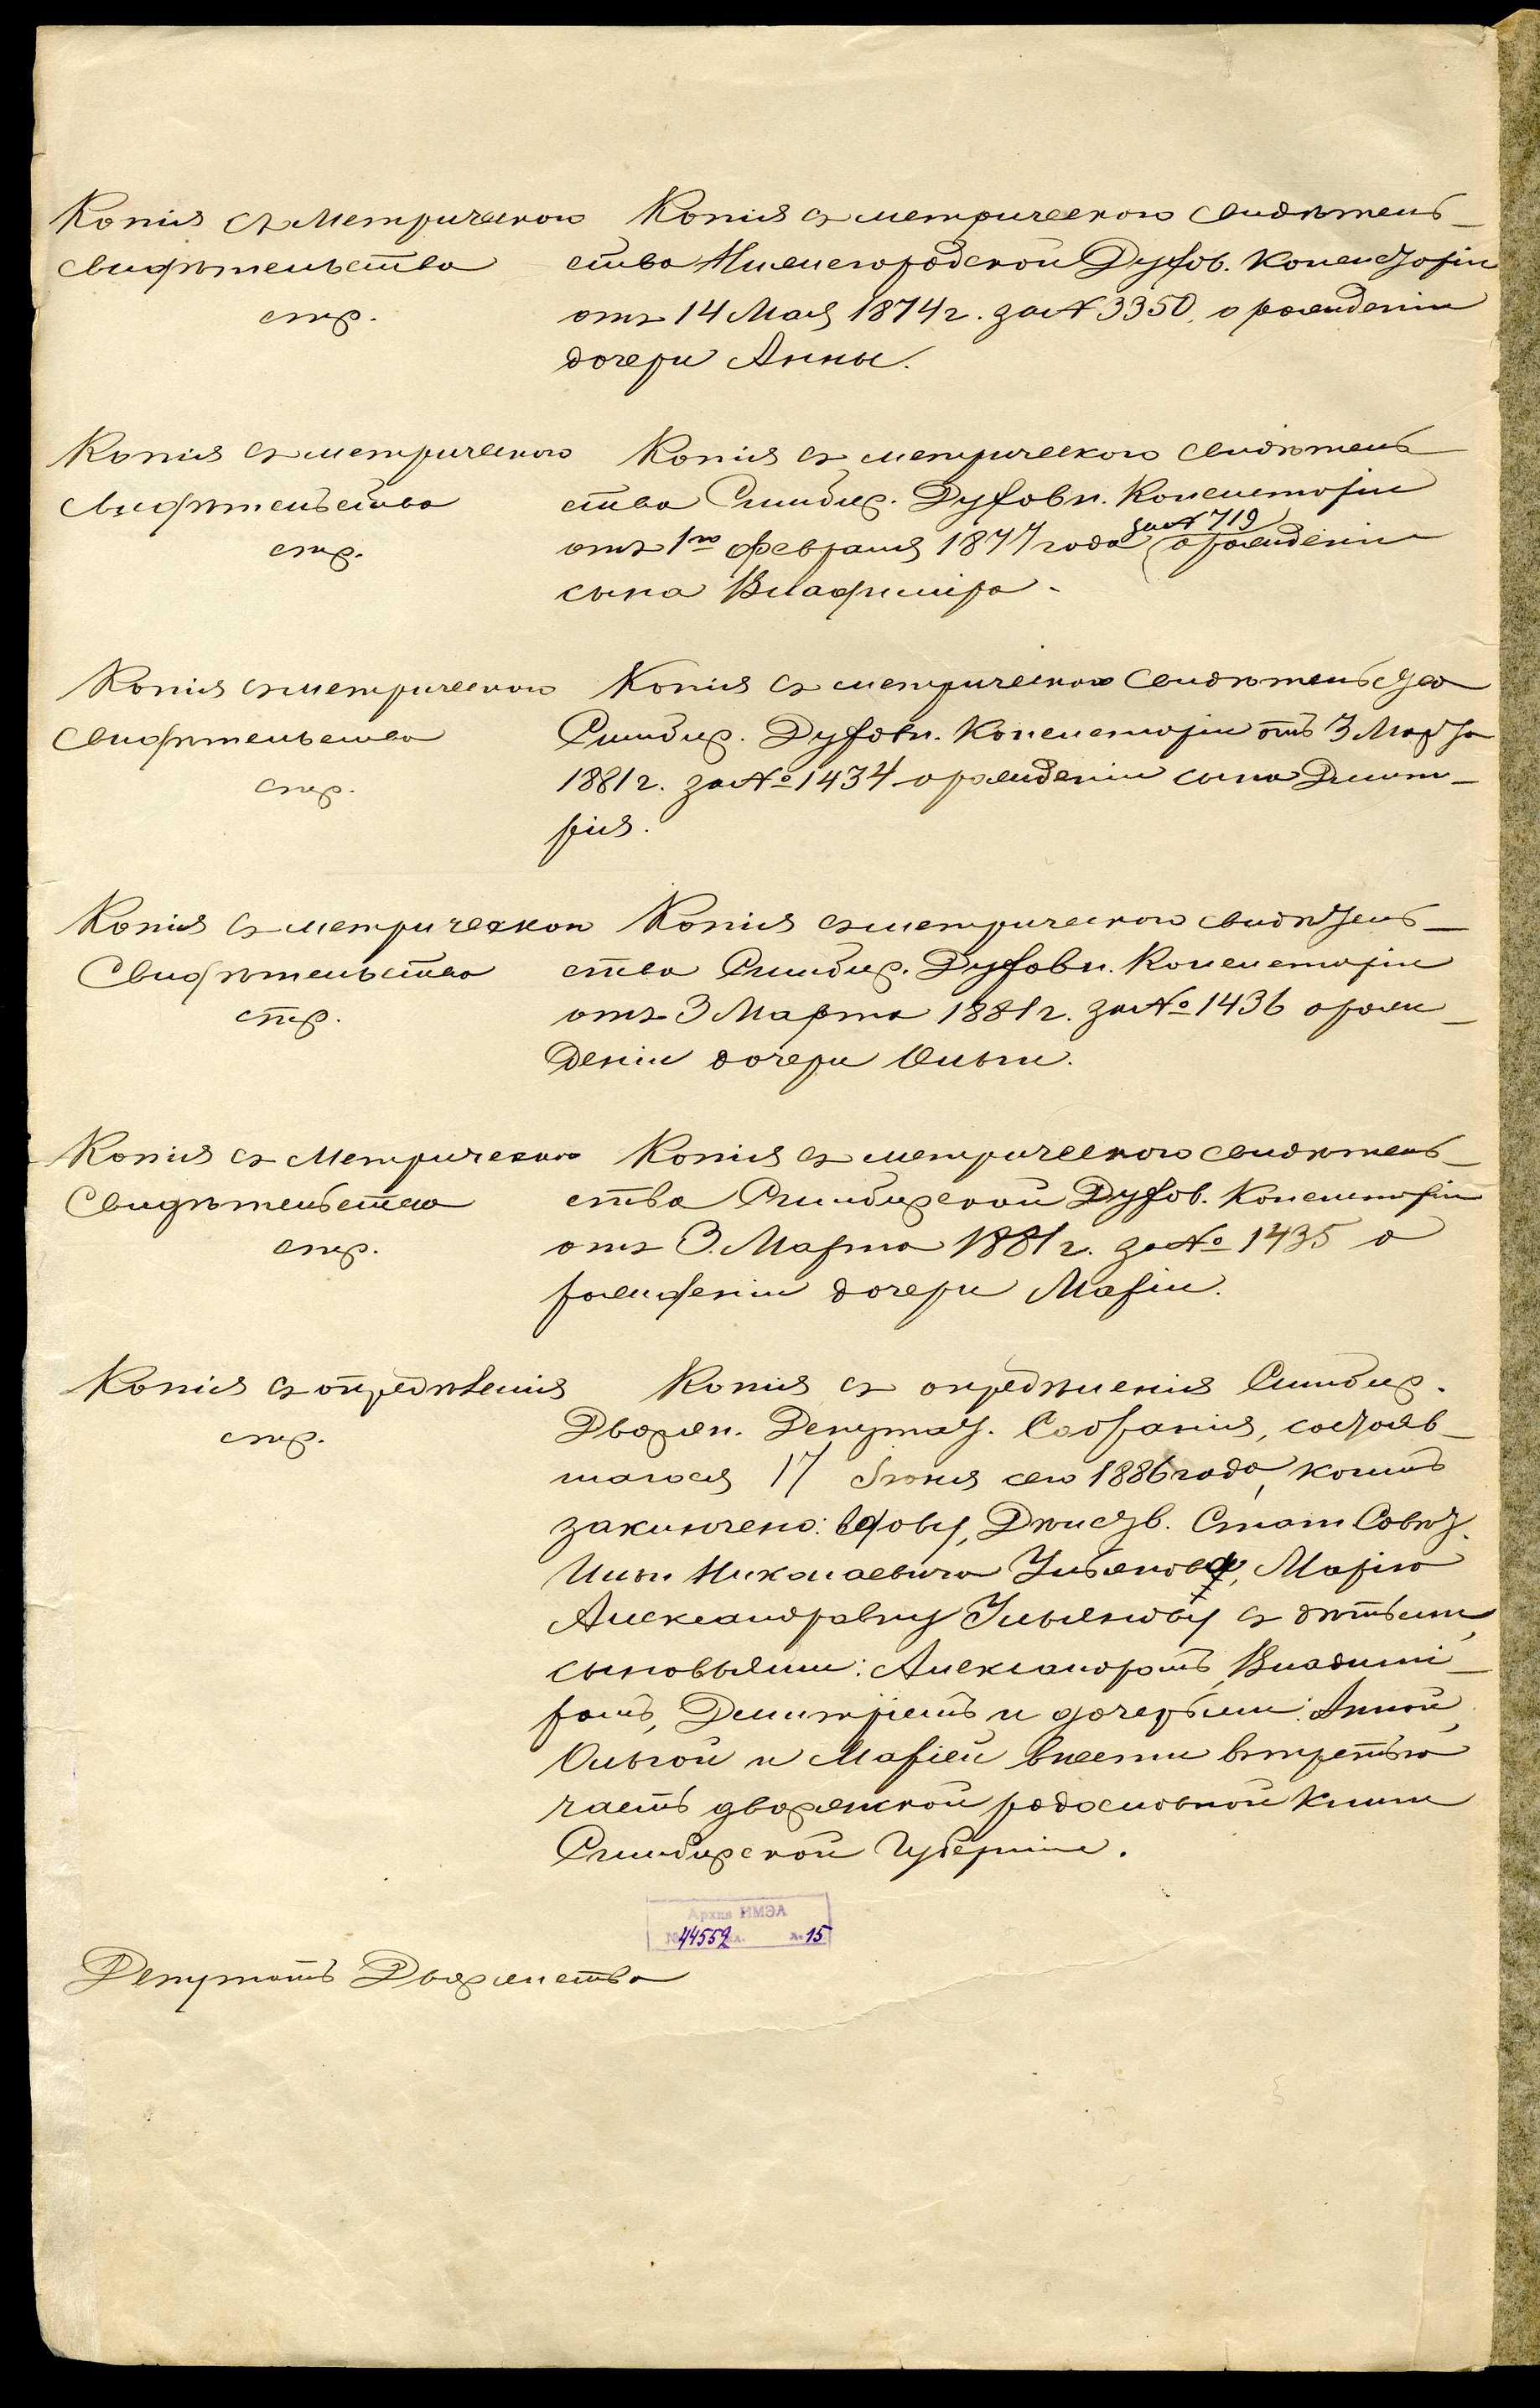 Копія съ метрическаго
свидѣтельства
стр.
Копія съ метрическаго свидѣтель-
ства Нижегородской Духов. Консисторіи
отъ 14 Мая 1874 г. за № 3350, о рожденіи
дочери Анны.
Копія съ метрическаго
свидѣтельства
стр.
Копія съ метрическаго свидѣтель
ства Симбир. Духовн. Консисторіи
за № 719
отъ 1го февраля 1877 года о рожденіи
сына Владиміра.
Копія съ метрическаго
свидѣтельства
стр.
Копія съ метрическаго свидѣтельства
Симбир. Духовн. Консисторіи отъ 3 Марта
1881 г. за № 1434 о рожденіи сына Дмит-
рія.
Копія съ метрическаго
Свидѣтельства
стр.
Копія съ метрическаго свидѣтель-
ства Симбир. Духовн. Консисторіи
отъ 3 Марта 1881 г. за № 1436 о рож-
деніи дочери Ольги.
Копія съ Метрическаго
Свидѣтельства
стр.
Копія съ метрическаго свидѣтель-
ства Симбирской Духов. Консисторіи
отъ 3 Марта 1881 г. за № 1435 о
рожденіи дочери Маріи.
Копія съ опредѣленія
стр.
Копія съ опредѣленія Симбир.
Дворян. Депутат. Собранія, состояв-
шагося 17 Іюня сего 1886 года, коимъ
заключено: вдову, Дѣйств. Стат. Совѣт.
Ильи Николаевича Ульянова, Марію
Александровну Ульянову съ дѣтьми,
сыновьями: Александромъ, Владимі-
ромъ, Димитріемъ и дочерьми: Анной,
Ольгой и Маріей внести въ третью
часть дворянской родословной книги
Симбирской Губерніи.
Архив ИМЭЛ
№ 44552 л. 15
Депутатъ Дворянства